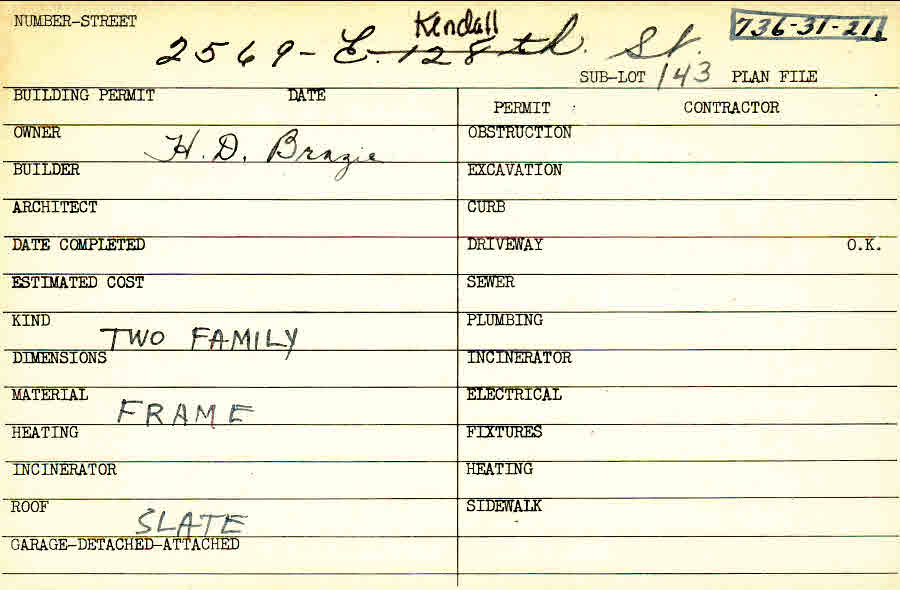 NUMBER-STREET
Kendall
736-31-21
2569 - E. 128th. St.
SUB-LOT 143 PLAN FILE
BUILDING PERMIT DATE
PERMIT CONTRACTOR
OWNER H. D. Brazie
OBSTRUCTION
BUILDER
EXCAVATION
ARCHITECT
CURB
DATE COMPLETED
DRIVEWAY O.K.
ESTIMATED COST
SEWER
KIND TWO FAMILY
PLUMBING
DIMENSIONS
INCINERATOR
MATERIAL FRAME
ELECTRICAL
HEATING
FIXTURES
INCINERATOR
HEATING
ROOF SLATE
SIDEWALK
GARAGE-DETACHED-ATTACHED